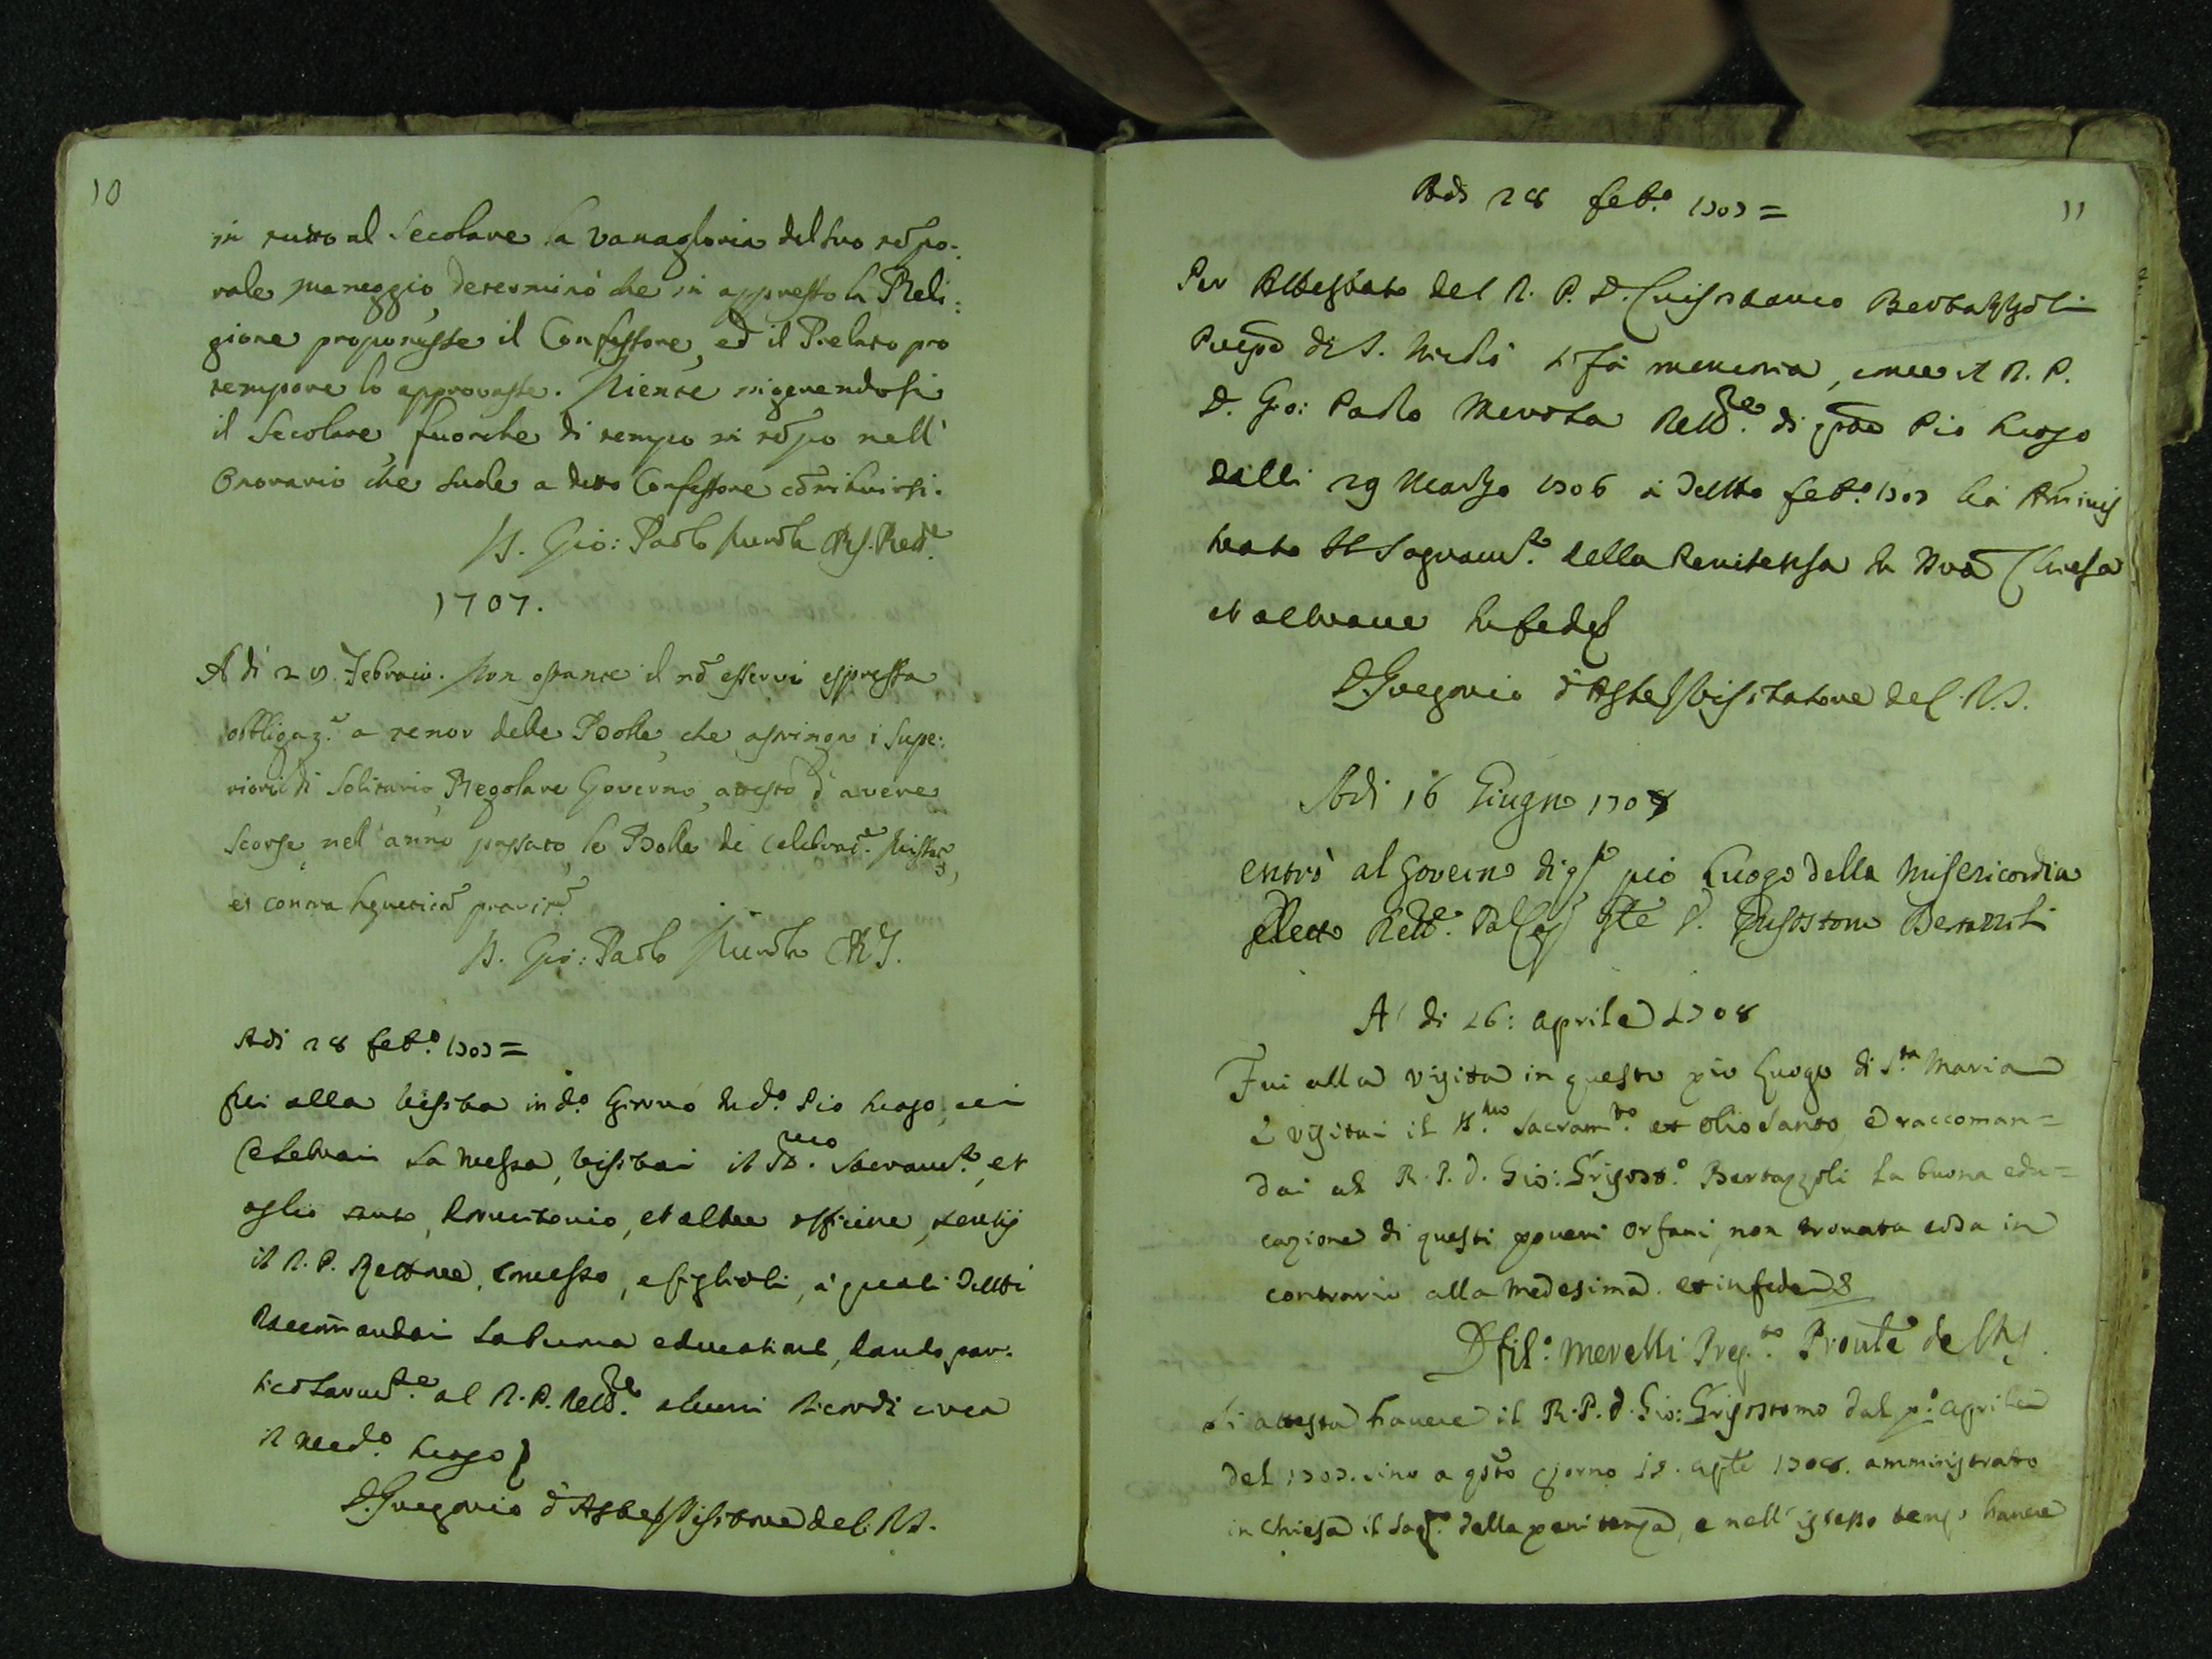 10
in tutto al Secolare la vanagloria del suo tẽpo-
rale maneggio, determinò che in appresso la Reli:
gione proponesse il Confessore, ed il Prelato pro
tempore lo approvasse. Niente ingerendosi
il Secolare, fuorche di tempo in tẽpo nell'
Onorario che suole a detto Confessore cõtribuirsi.
D. Gio: Paolo CRS. Rett.e
1707.
A di 28. Febraio. Non ostante il nõ esservi espressa
obbligaz.e a tenor delle Bolle, che astringa i Supe:
riori di Solitario Regolare Governo, attesto d'avere
scorse, nel anno passato, le Bolle de celebrat.e Missar,
et contra heretica pravit.
D. Gio: Paolo CRS.
Adi 28 feb.o 1707=
fui alla visita in d.o Giorno di d.o Pio luogo,
Celebrai la messa, visitai il SS.mo Sacram.to, et
oglio santo, Dormitorio, et altre officine, sentij
il R. P. Rettore, Comesso, e figlioli, à quali tutti
Raccõmandai la buona educatione, dando par-
ticolarm.te al R. P. Rett.re alcuni Ricordi circa
il med.o luogo
D. Gregorio d'Aste Visitatore del. V.S.
11
Adi 28 feb.o 1707=
Per Attestato del R. P. D. Crisostomo Bertazzoli
Prepo di S. Nicolò si fà memoria, come il R. P.
D. Gio: Paolo Rett.re di qsto Pio luogo
dalli 29 Marzo 1706 à tutto feb.o 1707 hà Aminis
trato il Sagram.to della Penitenza in nra Chiesa
et altroue in fede
D. Gregorio d'Aste Visitatore del. V.S.
Adi 16 Giugno 1707
entrò al Governo di qsto pio Luogo della Misericordia
eletto Rett.e D. Grisostomo Bertazzoli
A di 26: aprile 1708
Fui alla visita in questo pio Luogo di S.ta Maria
e visitai il SS.mo Sacram.to et Olio Santo, e raccoman=
dai al R. P. D. Gio: Grisost.o Bertazzoli la buona edu=
cazione di questi poveri Orfani, non trovata cosa in
contrario alla medesima. et in fede
D. fil.o Merelli Prep.to Pronle de CRS.
Si attesta havere il R. P. D. Gio: Grisostomo dal p.o Aprile
del 1707. sino a qsto giorno aple 1708. amministrato
in Chiesa il Sag.to della penitenza, e nell'istesso tempo havere